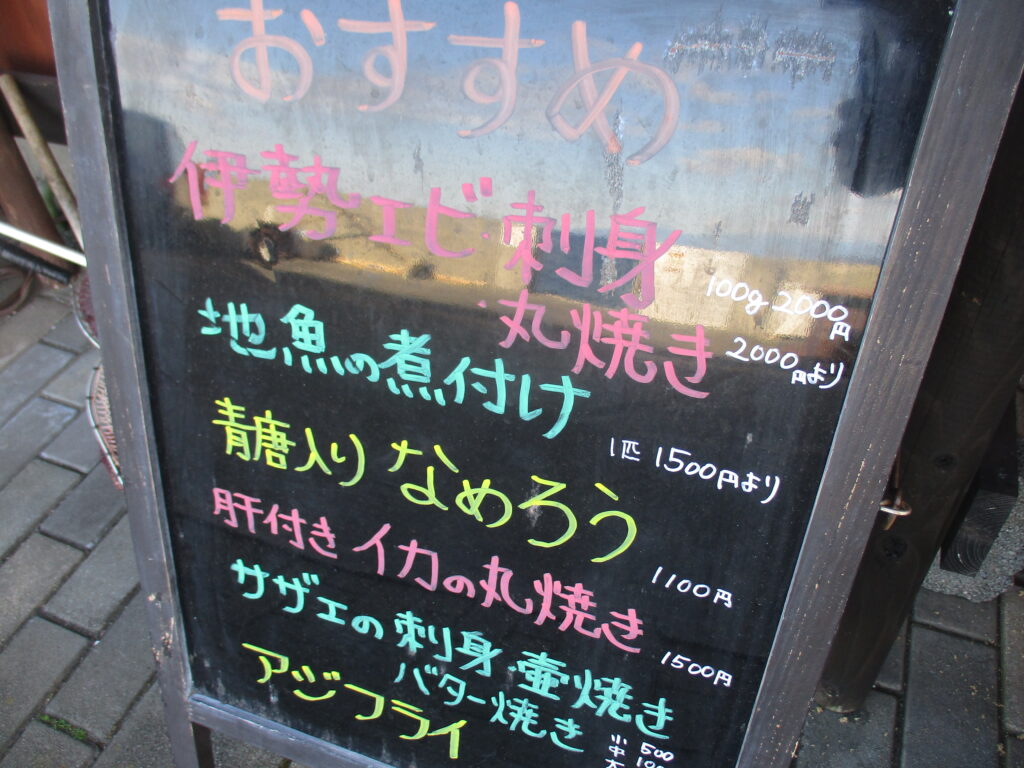 おすすめ
伊勢エビ・刺身
100g 2000円
・丸焼き 2000円より
地魚の煮付け
1匹 1500円より
青唐入り なめろう
1100円
肝付き イカの丸焼き
1500円
サザエの刺身・壷焼き
バター焼き
小 500
中
大
アジフライ